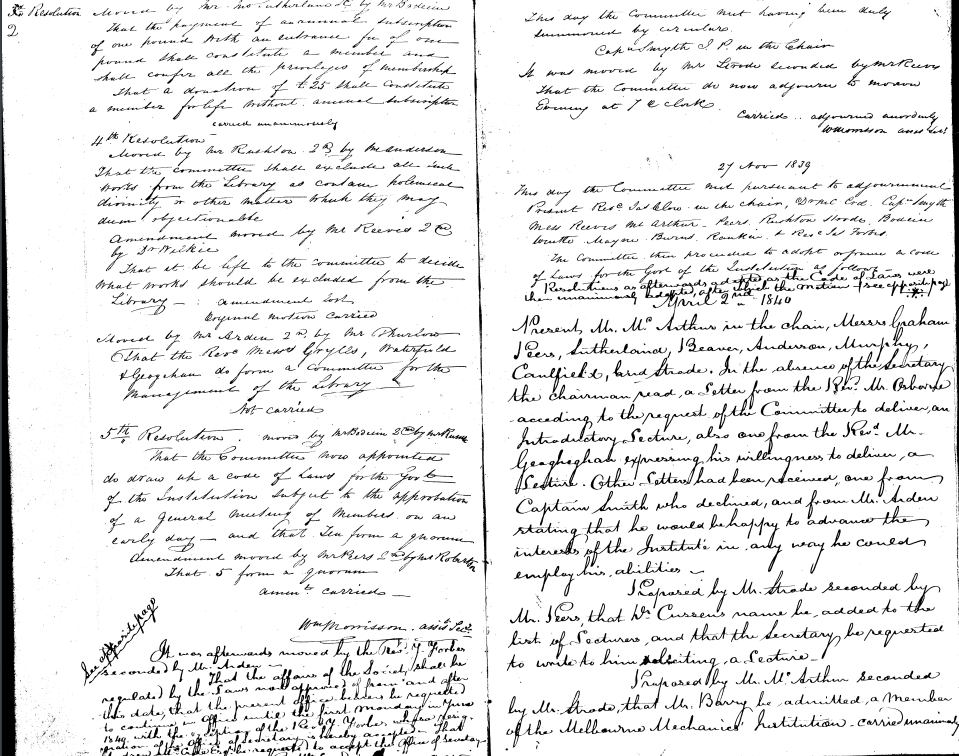 Resolution Moved by Mr Mc Sutherland 2d by Mr Bodein
2
That the payment of an annual subscription
of one pound with an entrance fee of one
pound shall constitute a member and
shall confer all the privileges of membership
That a donation of £25 shall constitute
a member for life without annual subscription
carried unanimously
4th Resolution
Moved by Mr Rushton 2d by Mr Anderson
That the committee shall exclude all such
works from the Library as contain polemical
divinity or other matter which they may
deem objectionable
Amendment moved by Mr Reeves 2d
by Dr Wilkie
That it be left to the committee to decide
what works should be excluded from the
Library – amendment lost
Original motion carried
Moved by Mr Arden 2d by Mr Thurlow
That the Revd Messrs Grylls, Waterfield
& Geoghehan do form a committee for the
Management of the Library –
Not carried
5th Resolution. moved by Mr Bodein 2d by Mr
That the Committee now appointed
do draw up a code of Laws for the Govt
of the Institution subject to the approbation
of a General Meeting of Members on an
early day – and that Ten form a quorum
Amendment moved by Mr Peers 2d by Mr Roberton
That 5 form a quorum
amendt carried –
Wm Morrison. assist Secy
See opposite page
It was afterwards moved by the Revd Y Forbes
seconded by Mr Arden –
That the affairs of the Society shall be
regulated by the Laws now approved of from and after
this date, that the present office bearers be requested
to continue in Office until the first Monday in June
1840 with the exception of the Revd Y Forbes whose resig-
nation of the office of Secretary is hereby accepted – That
be requested to accept the Office of Secretary
This day the Committee met having been duly
summoned by circular.
Capn Smyth J. P. in the Chair
It was moved by Mr Hoode seconded by Mr Reeves
That the Committee do now adjourn to morrow
Evening at 7 O'clock
Carried.. adjourned accordingly
Wm Morrison assist Secy
27 Nov 1839
This day the Committee met pursuant to adjournment
Present Revd Jas Clow in the chair, Dr Cod. Capn Smyth
Mess Reeves Mc Arthur – Peers, Rushton Hoode, Bodein
Wentke Mayne. Burns, Rankin, & Revd Jas Forbes.
The Committee then proceeded to adopt or frame a code
of Laws for the Govt of the Institution as follows
Resolutions as afterwards adopted as the Code of Laws were
then unanimously adopted, after which the motion (see opposite page)
April 2nd 1840
Present, Mr. Mc Arthur in the chair, Messrs Graham
Peers, Sutherland, Beaver, Anderson, Murphy,
Caulfield, and Strode. In the absence of the Secretary
the chairman read, a Letter from the Revd. Mr. Osborne
acceding to the request of the Committee to deliver, an
Introductory Lecture, also one from the Revd Mr.
Geoghehan expressing, his willingness to deliver, a
Lecture. Other Letters had been received, one from
Captain Smith who declined, and from Mr. Arden
stating that he would be happy to advance the
interests of the Institute in, any way he could
employ his, abilities –
Proposed by Mr. Strode seconded by
Mr. Peers, that Dr Cussens name be, added to the
list of Lecturers, and that the Secretary be requested
to write to him soliciting, a Lecture –
Proposed by Mr. Mc Arthur seconded
by Mr. Strode, that Mr. Barry be, admitted, a Member
of the Melbourne Mechanics' Institution – carried unanimously